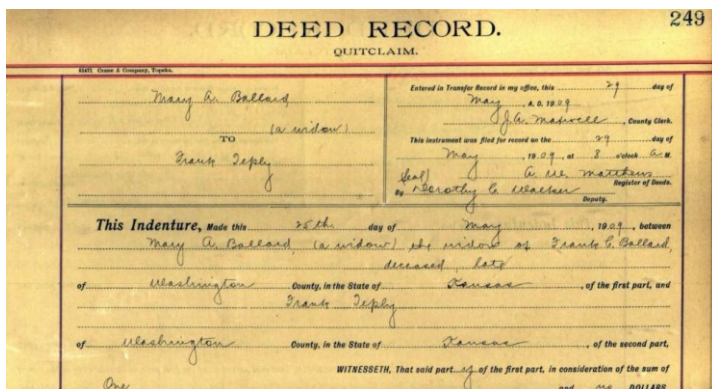 249
DEED RECORD.
QUITCLAIM.
Crane & Company, Topeka.
Mary A. Ballard
(a widow)
TO
Frank Teply
Entered in Transfer Record in my office, this 29 day of
May, A. D. 1909
J. A. Maxwell, County Clerk.
This instrument was filed for record on the 29 day of
May, 1909, at 8 o'clock A M.
(Seal) A. W. Matthews
Register of Deeds.
By Dorothy C. Walker
Deputy.
This Indenture, Made this 25th day of May, 1909, between
Mary A. Ballard, (a widow) the widow of Frank C. Ballard,
deceased late
of Washington County, in the State of Kansas, of the first part, and
Frank Teply
of Washington County, in the State of Kansas, of the second part,
WITNESSETH, That said part y of the first part, in consideration of the sum of
One and no DOLLARS